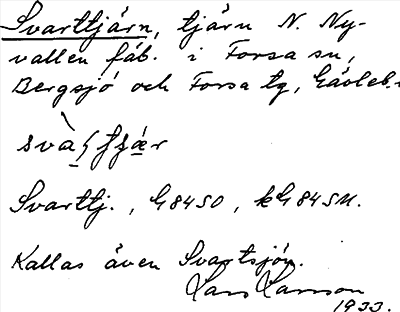 Svarttjärn, tjärn N. Ny-
vallen fäb. i Forsa sn,
Bergsjö och Forsa tg, Gävleb.
Svarttj., G84SO, kG84SM.
Kallas även Svartsjön.
Lars Larsson
1933.